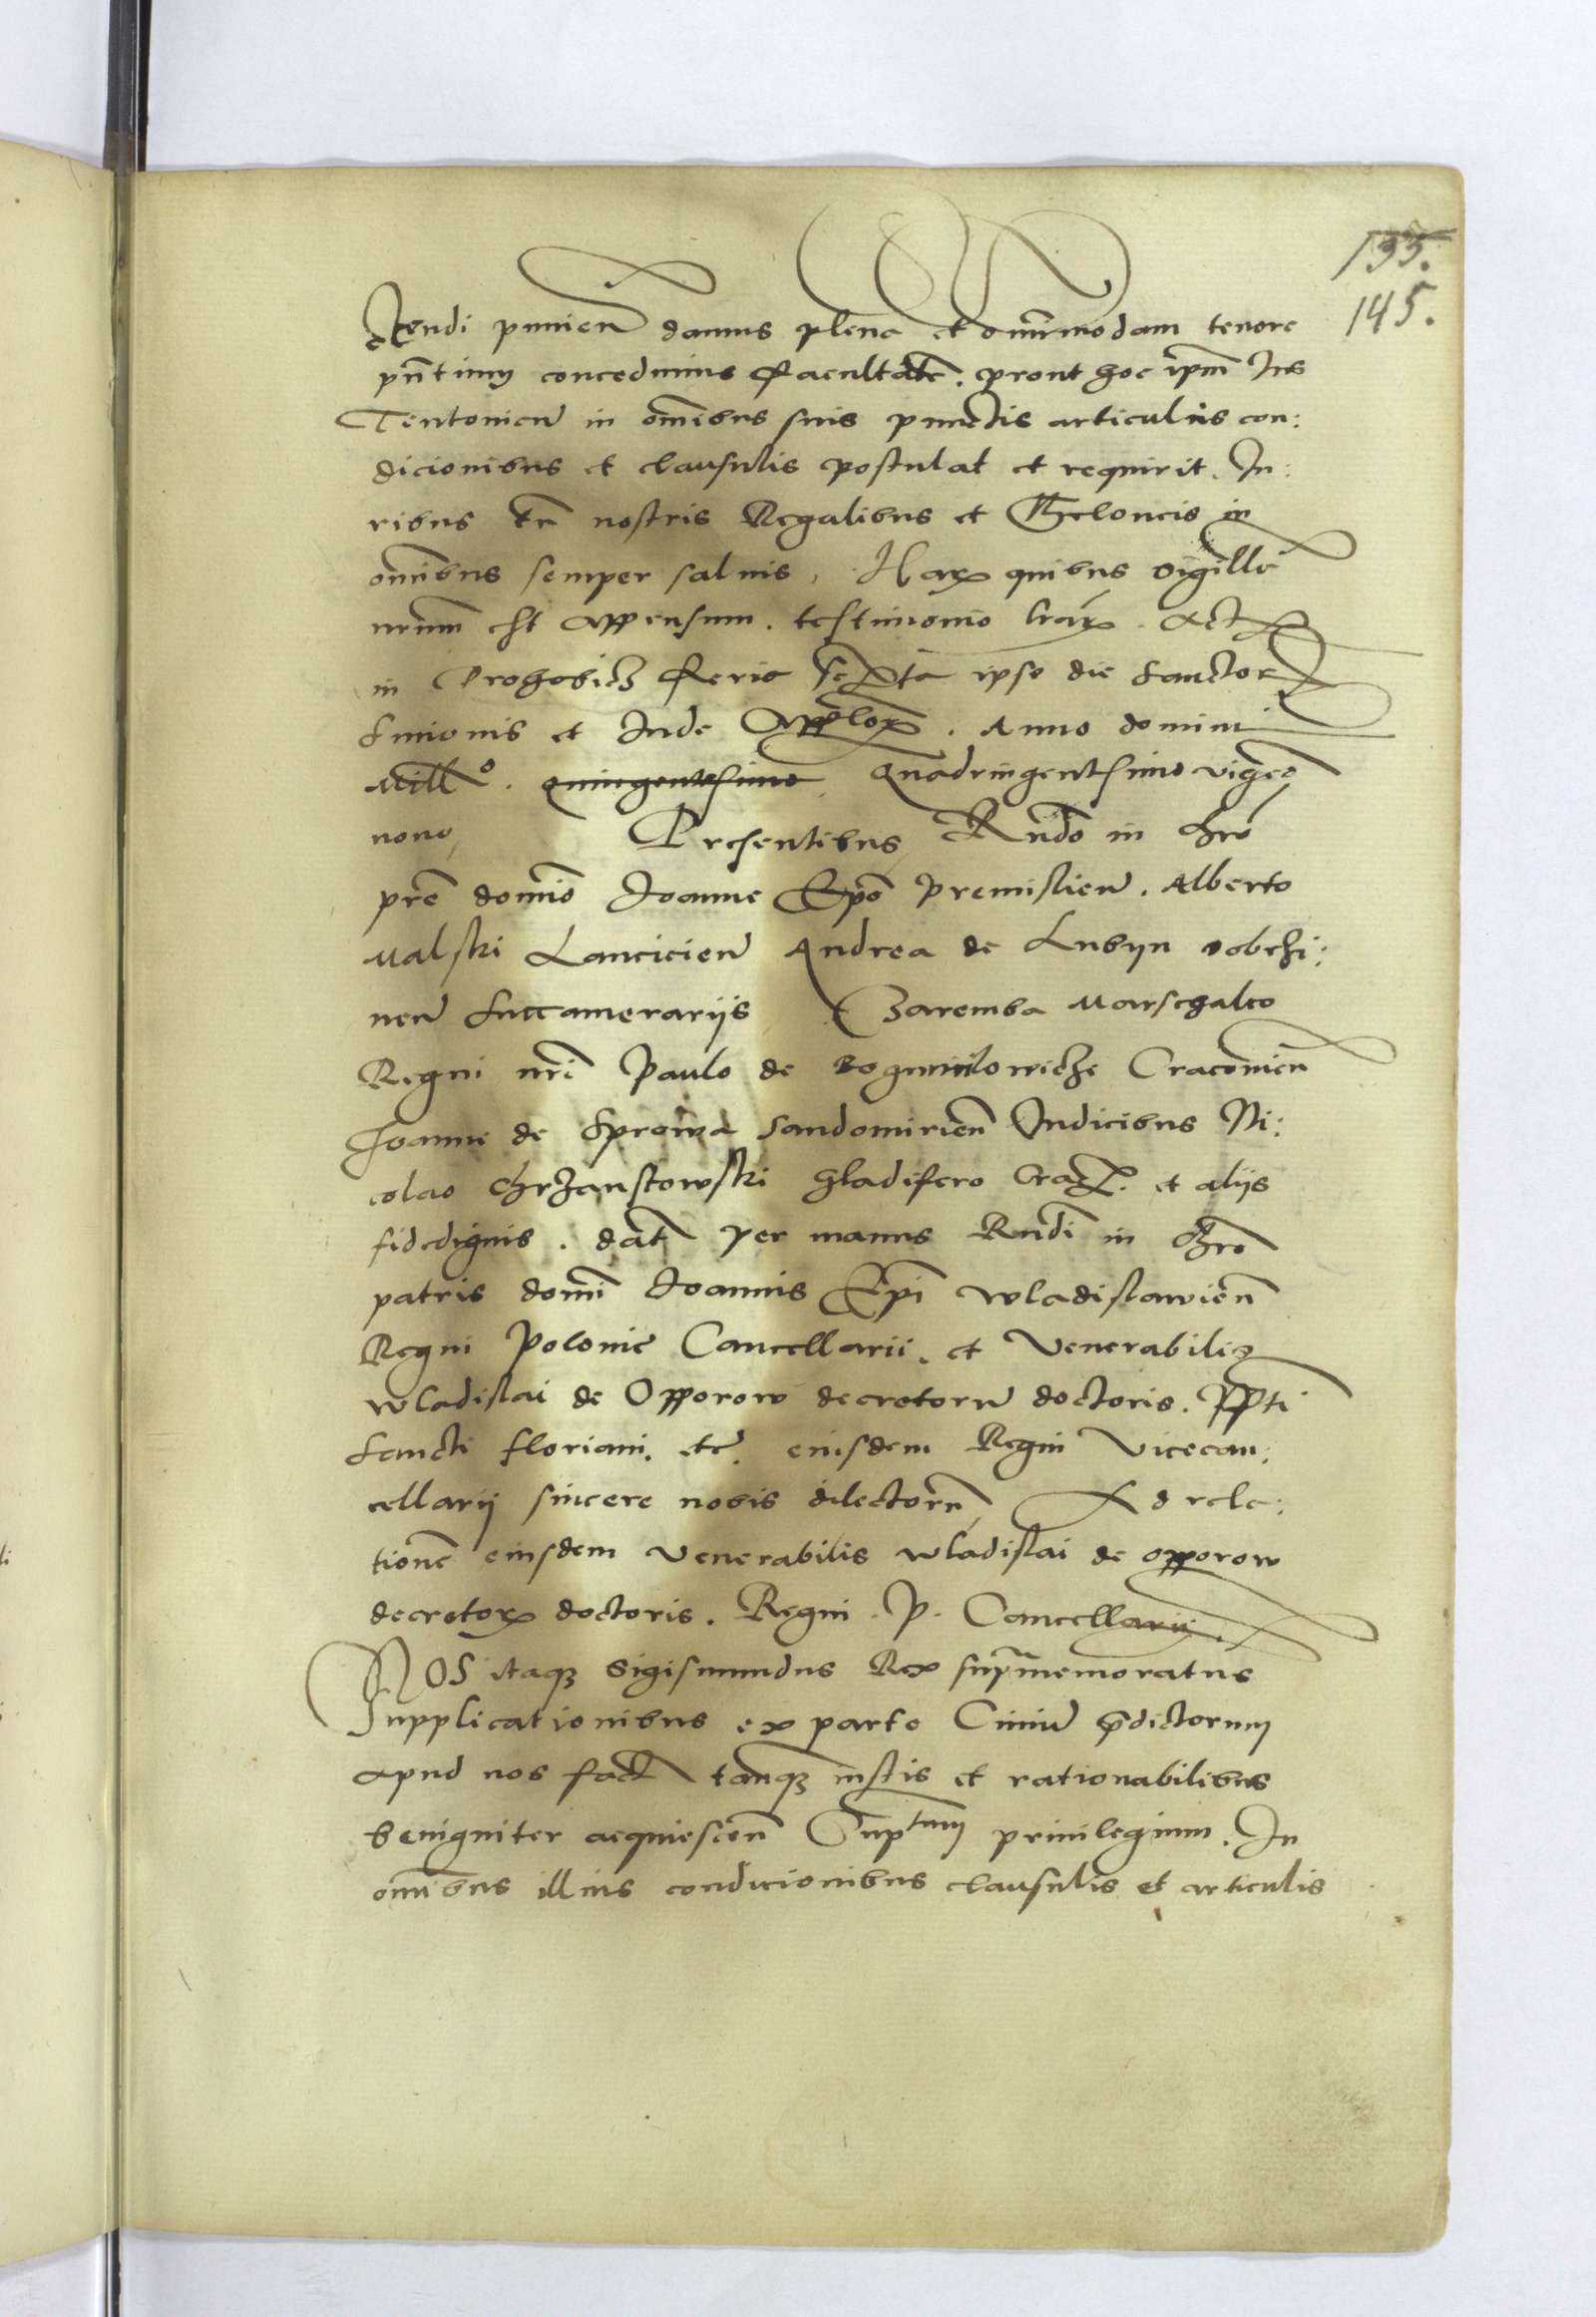 135.
145.
ctendi punien damus plena et omnimodam tenore
pntium concedimus facultate. prout hoc ipm Ius
Teutonicu in omnibus suis punctis articulis con:
dicionibus et clausulis postulat et requirit. Iu:
ribus tn nostris Regalibus et Theloneis in
omnibus semper saluis. Harx quibus Sigillu
nrum est appensum. testimonio lrarx. Act
in Drohobicz feria sexta ipso die Sanctor
Simonis et Iude Applorx. Anno domini
Mill°. quingentesimo Quadringentesimo vigeo
nono Presentibus Rndo in Chro
pre domino Ioanne Epo Premislien. Alberto
Malski Lancicien Andrea de Lubyn dobrzi:
nen Succamerariis Zaremba Marschalco
Regni nri Paulo de Bogumilowicze Cracouien
Ioanne de Sprowa Sandomirien Iudicibus Ni:
colao Chrzanstowski gladifero Crac. et aliis
fidedignis. dat per manus Rndi in Chro
patris domi Ioannis Epi Wladislawien
Regni Polonie Cancellarii. et Venerabilis
Wladislai de Opporow decretoru doctoris. Ppti
Sancti Floriani. etc. eiusdem Regni Vicecan:
cellarij sincere nobis dilectoru Ad rela:
tione eiusdem Venerabilis Wladislai de Opporow
decretorx doctoris. Regni. P. Cancellarij.
NOS itaq Sigismundus Rex supramemoratus
Supplicationibus ex parte Ciuiu pdictorum
apud nos fact tanq iustis et rationabilibus
benigniter acquiescen Suptum priuilegium. In
omnibus illius condicionibus clausulis et articulis